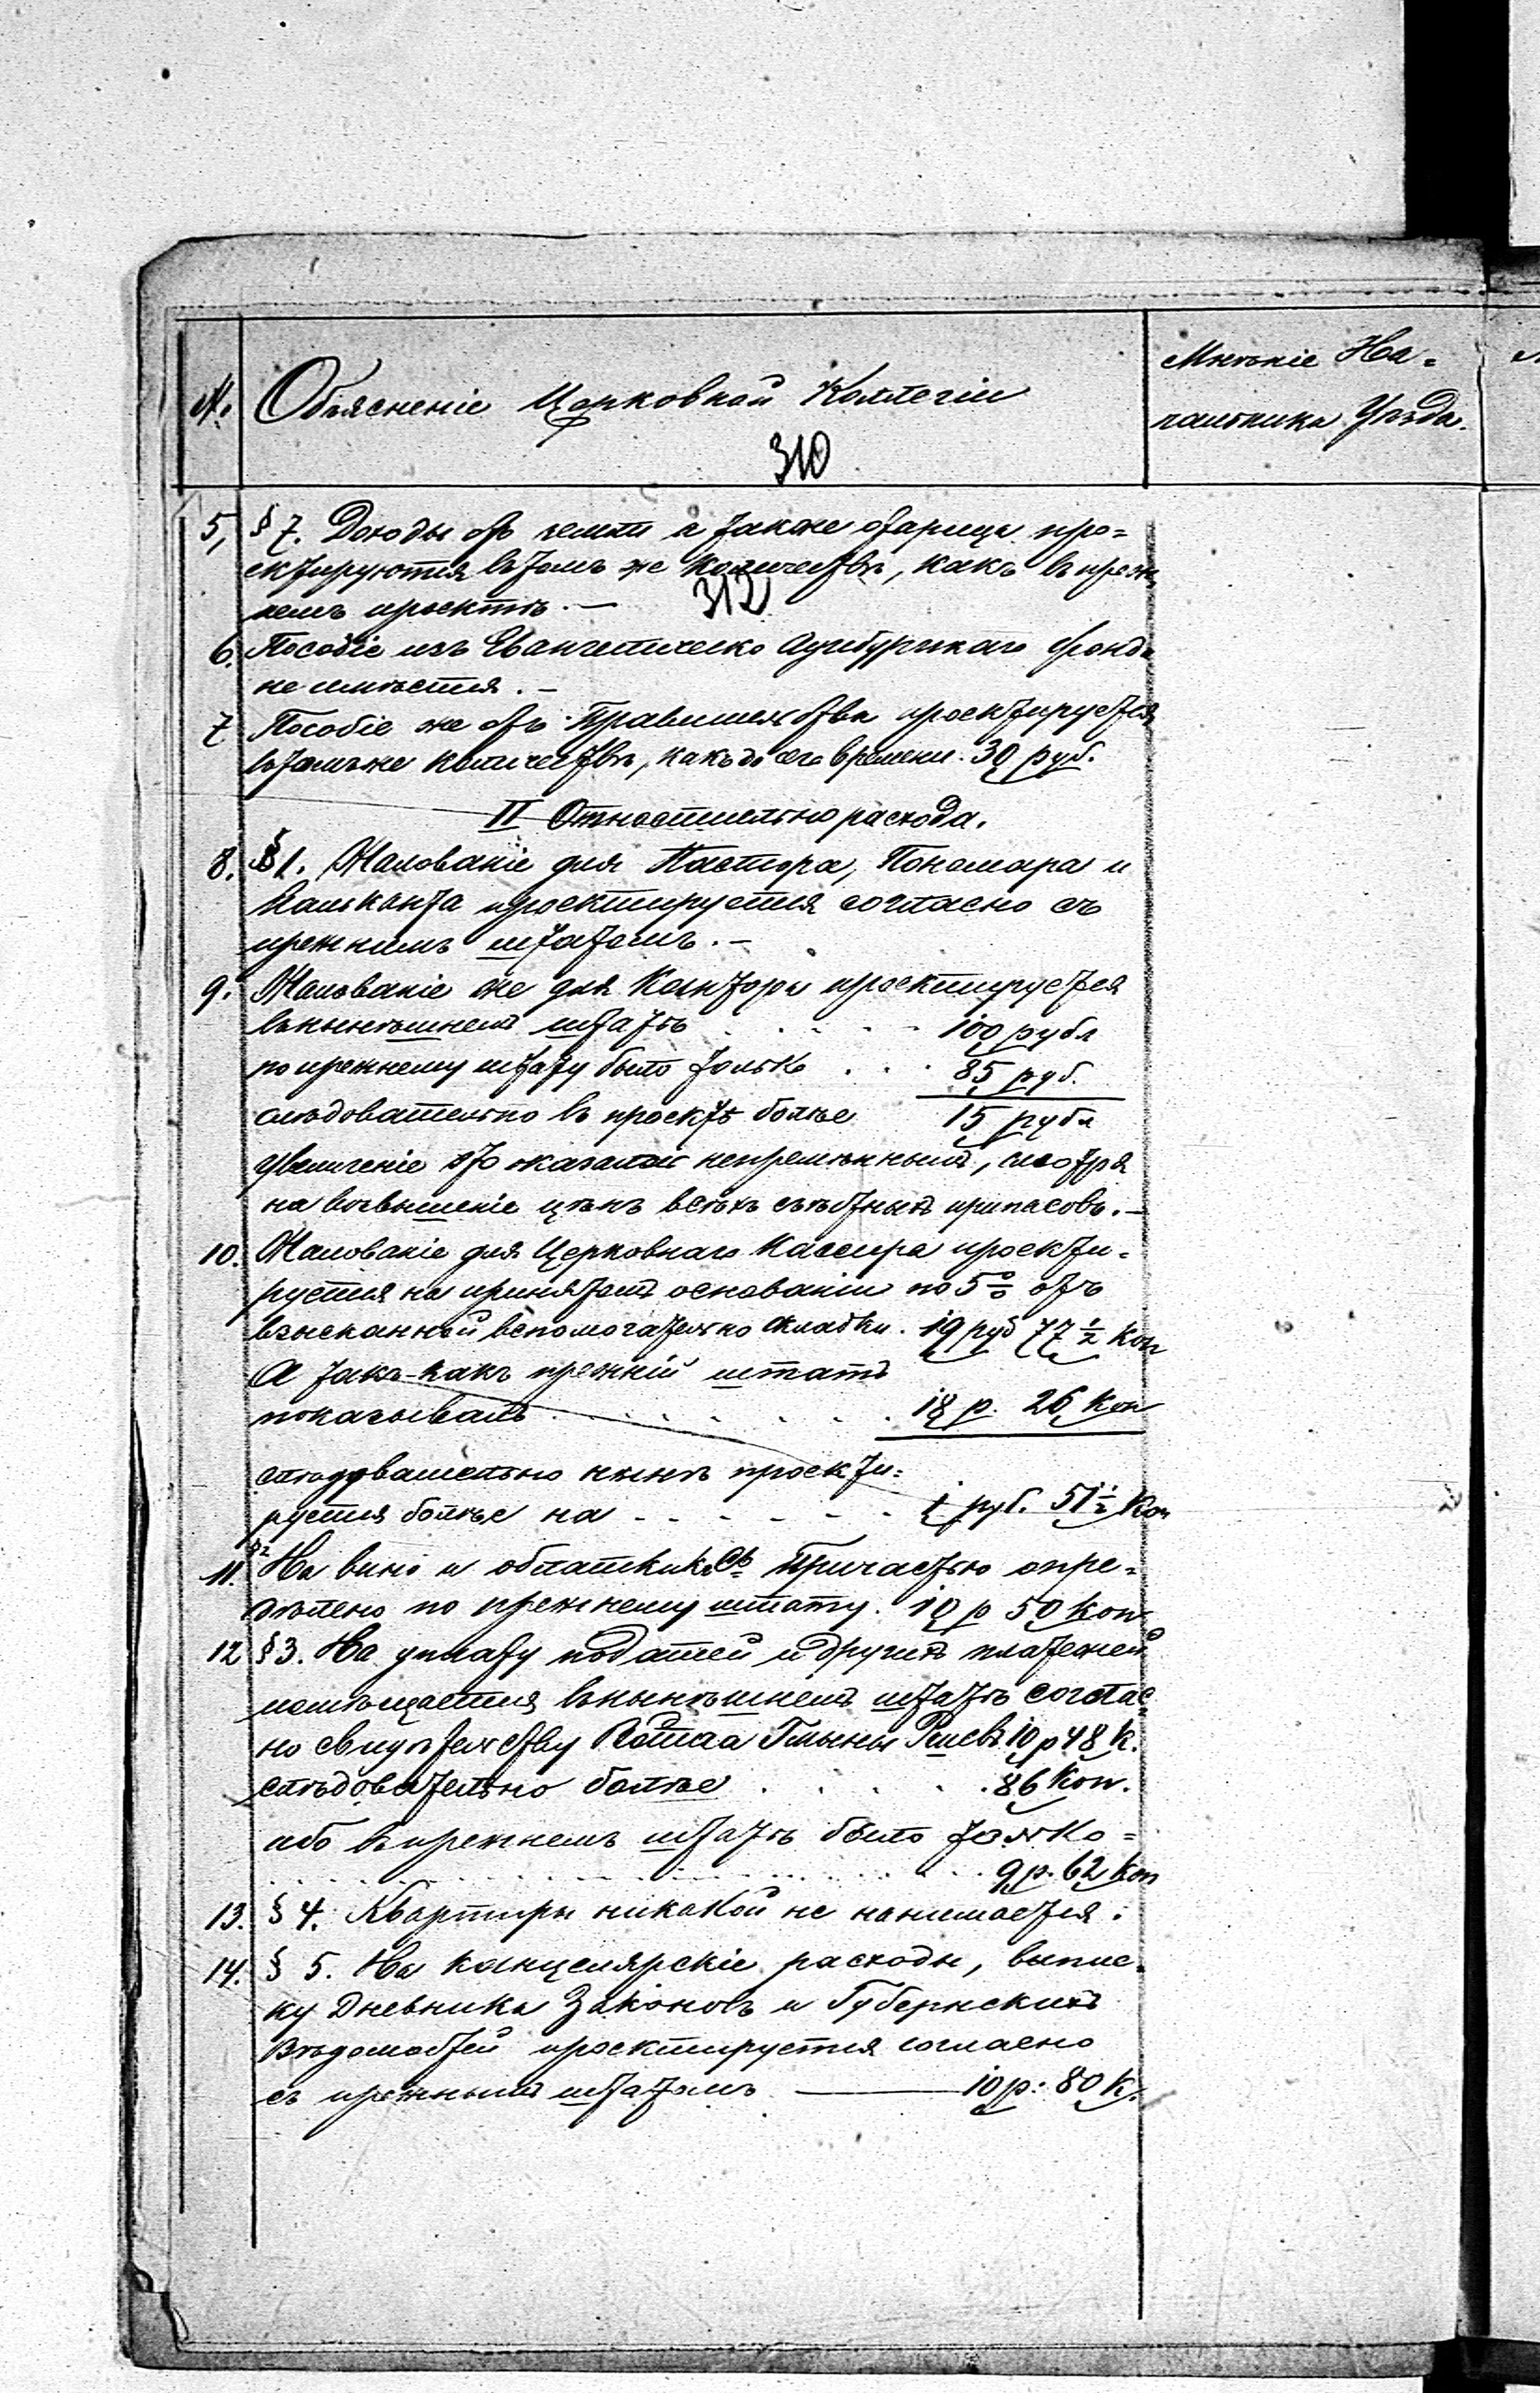 №.
Объясненіе Церковной Коллегіи
310
Мнѣніе На=
чальника Уѣзда.
5, § 7. Доходы отъ земли а также огарица про=
ектируются въ томъ же количествѣ, какъ въ преж
немъ проектѣ. —
312
6. Пособіе изъ Евангелическо Аугсбургскаго фонда
не имѣется. —
7 Пособіе же отъ Правительства проектируется
въ томъ же количествѣ, какъ до сего времени. 30 руб.
II Относительно расхода.
8. § 1. Жалованіе для Пастора, Пономара и
Калканта проектируется согласно съ
прежнимъ штатомъ. —
9. Жалованіе же для Кантора проектируется
въ нынѣшнемъ штатѣ . . . . . 100 рубл
по прежнему штату было только . . . 85 руб.
слѣдовательно въ проектѣ болѣе 15 рубл
Увеличеніе это оказалось непремѣннымъ, смотря
на возвышеніе цѣнъ всѣхъ съѣстныхъ припасовъ. —
10. Жалованіе для Церковнаго Кассира проекти=
руется на принятомъ основаніи по 5% отъ
взысканной вспомогательно складки. 19 руб 77 1/2 коп
А такъ-какъ прежній штатъ
показывалъ . . . . . . . 18 р. 26 коп
слѣдовательно нынѣ проекти=
руется болѣе на - - - - - - 1 руб. 51 1/2 коп
11. § 2 На вино и облатки къ Св. Причастью опре=
дѣлено по прежнему штату. 10 р 50 коп
12 § 3. На уплату податей и другихъ платежей
помѣщается въ нынѣшнемъ штатѣ соглас=
но свидѣтельству Войта Гмины 10 р 48 к.
слѣдовательно болѣе . . . . . 86 коп.
ибо въ прежнемъ штатѣ было только =
. . . . . . . . . . . . 9 р. 62 коп
13. § 4. Квартиры никакой не нанимается.
14. § 5. На канцелярскіе расходы, выпис=
ку Дневника Законовъ и Губернскихъ
Вѣдомостей проектируется согласно
съ прежнымъ штатомъ — 10 р: 80 к.